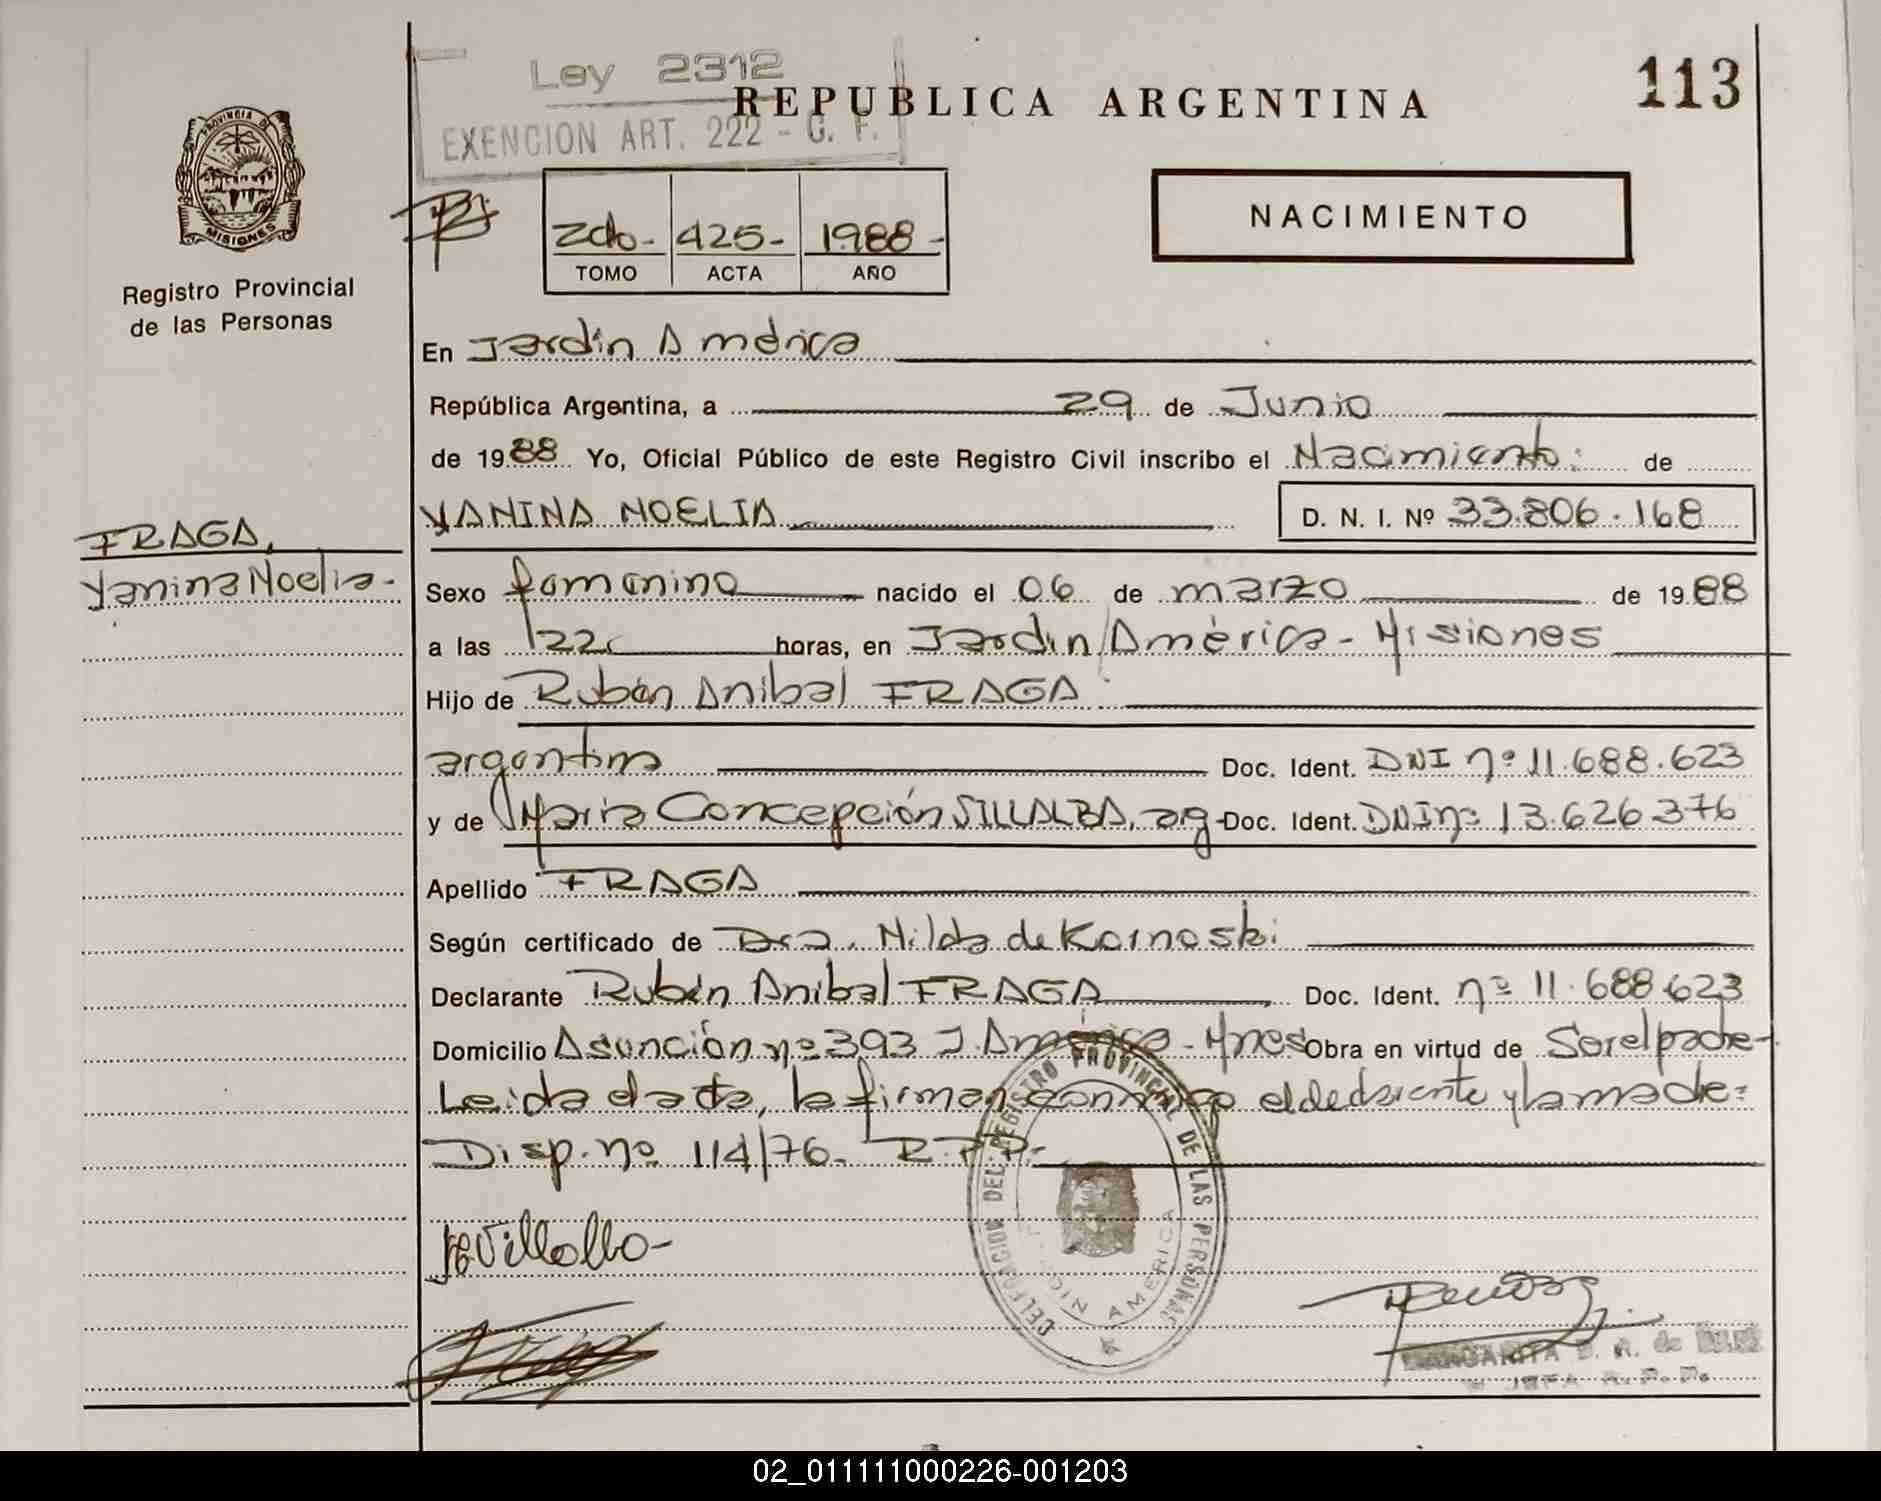 Ley 2312
EXENCION ART. 222 - C. F.
REPUBLICA ARGENTINA
113
PROVINCIA DE
MISIONES
Registro Provincial
de las Personas
2do- 425- 1988-
TOMO ACTA AÑO
NACIMIENTO
En Jardín América
República Argentina, a 29 de Junio
de 1988 Yo, Oficial Público de este Registro Civil inscribo el Nacimiento: de
YANINA NOELIA D. N. I. Nº 33.806.168
FRAGA,
Yanina Noelia-
Sexo femenino nacido el 06 de marzo de 1988
a las 22 horas, en Jardin América - Misiones
Hijo de Rubén Anibal FRAGA
argentino Doc. Ident. DNI nº 11.688.623
y de María Concepción VILLALBA, arg- Doc. Ident. DNI nº 13.626.376
Apellido FRAGA
Según certificado de Dra. Nilda de Kornoski
Declarante Rubén Anibal FRAGA Doc. Ident. nº 11.688.623
Domicilio Asunción nº 393 J. América - Mnes Obra en virtud de Ser el padre-
Leida el acta, la firman conmigo el declarante y la madre=
Disp. nº 114/76- R.P.P.-
DELEGACION DEL REGISTRO PROVINCIAL DE LAS PERSONAS
JARDIN AMERICA
MCVillalba-
MARGARITA
JEFA R. P. P.
02_011111000226-001203